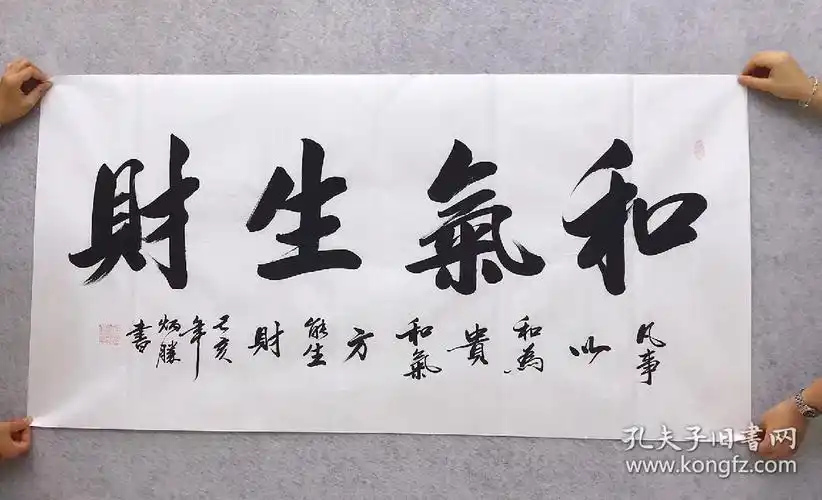 和氣生財
凡事以和為貴和氣方能生財己亥年炳勝書
孔夫子旧書网
www.kongfz.com